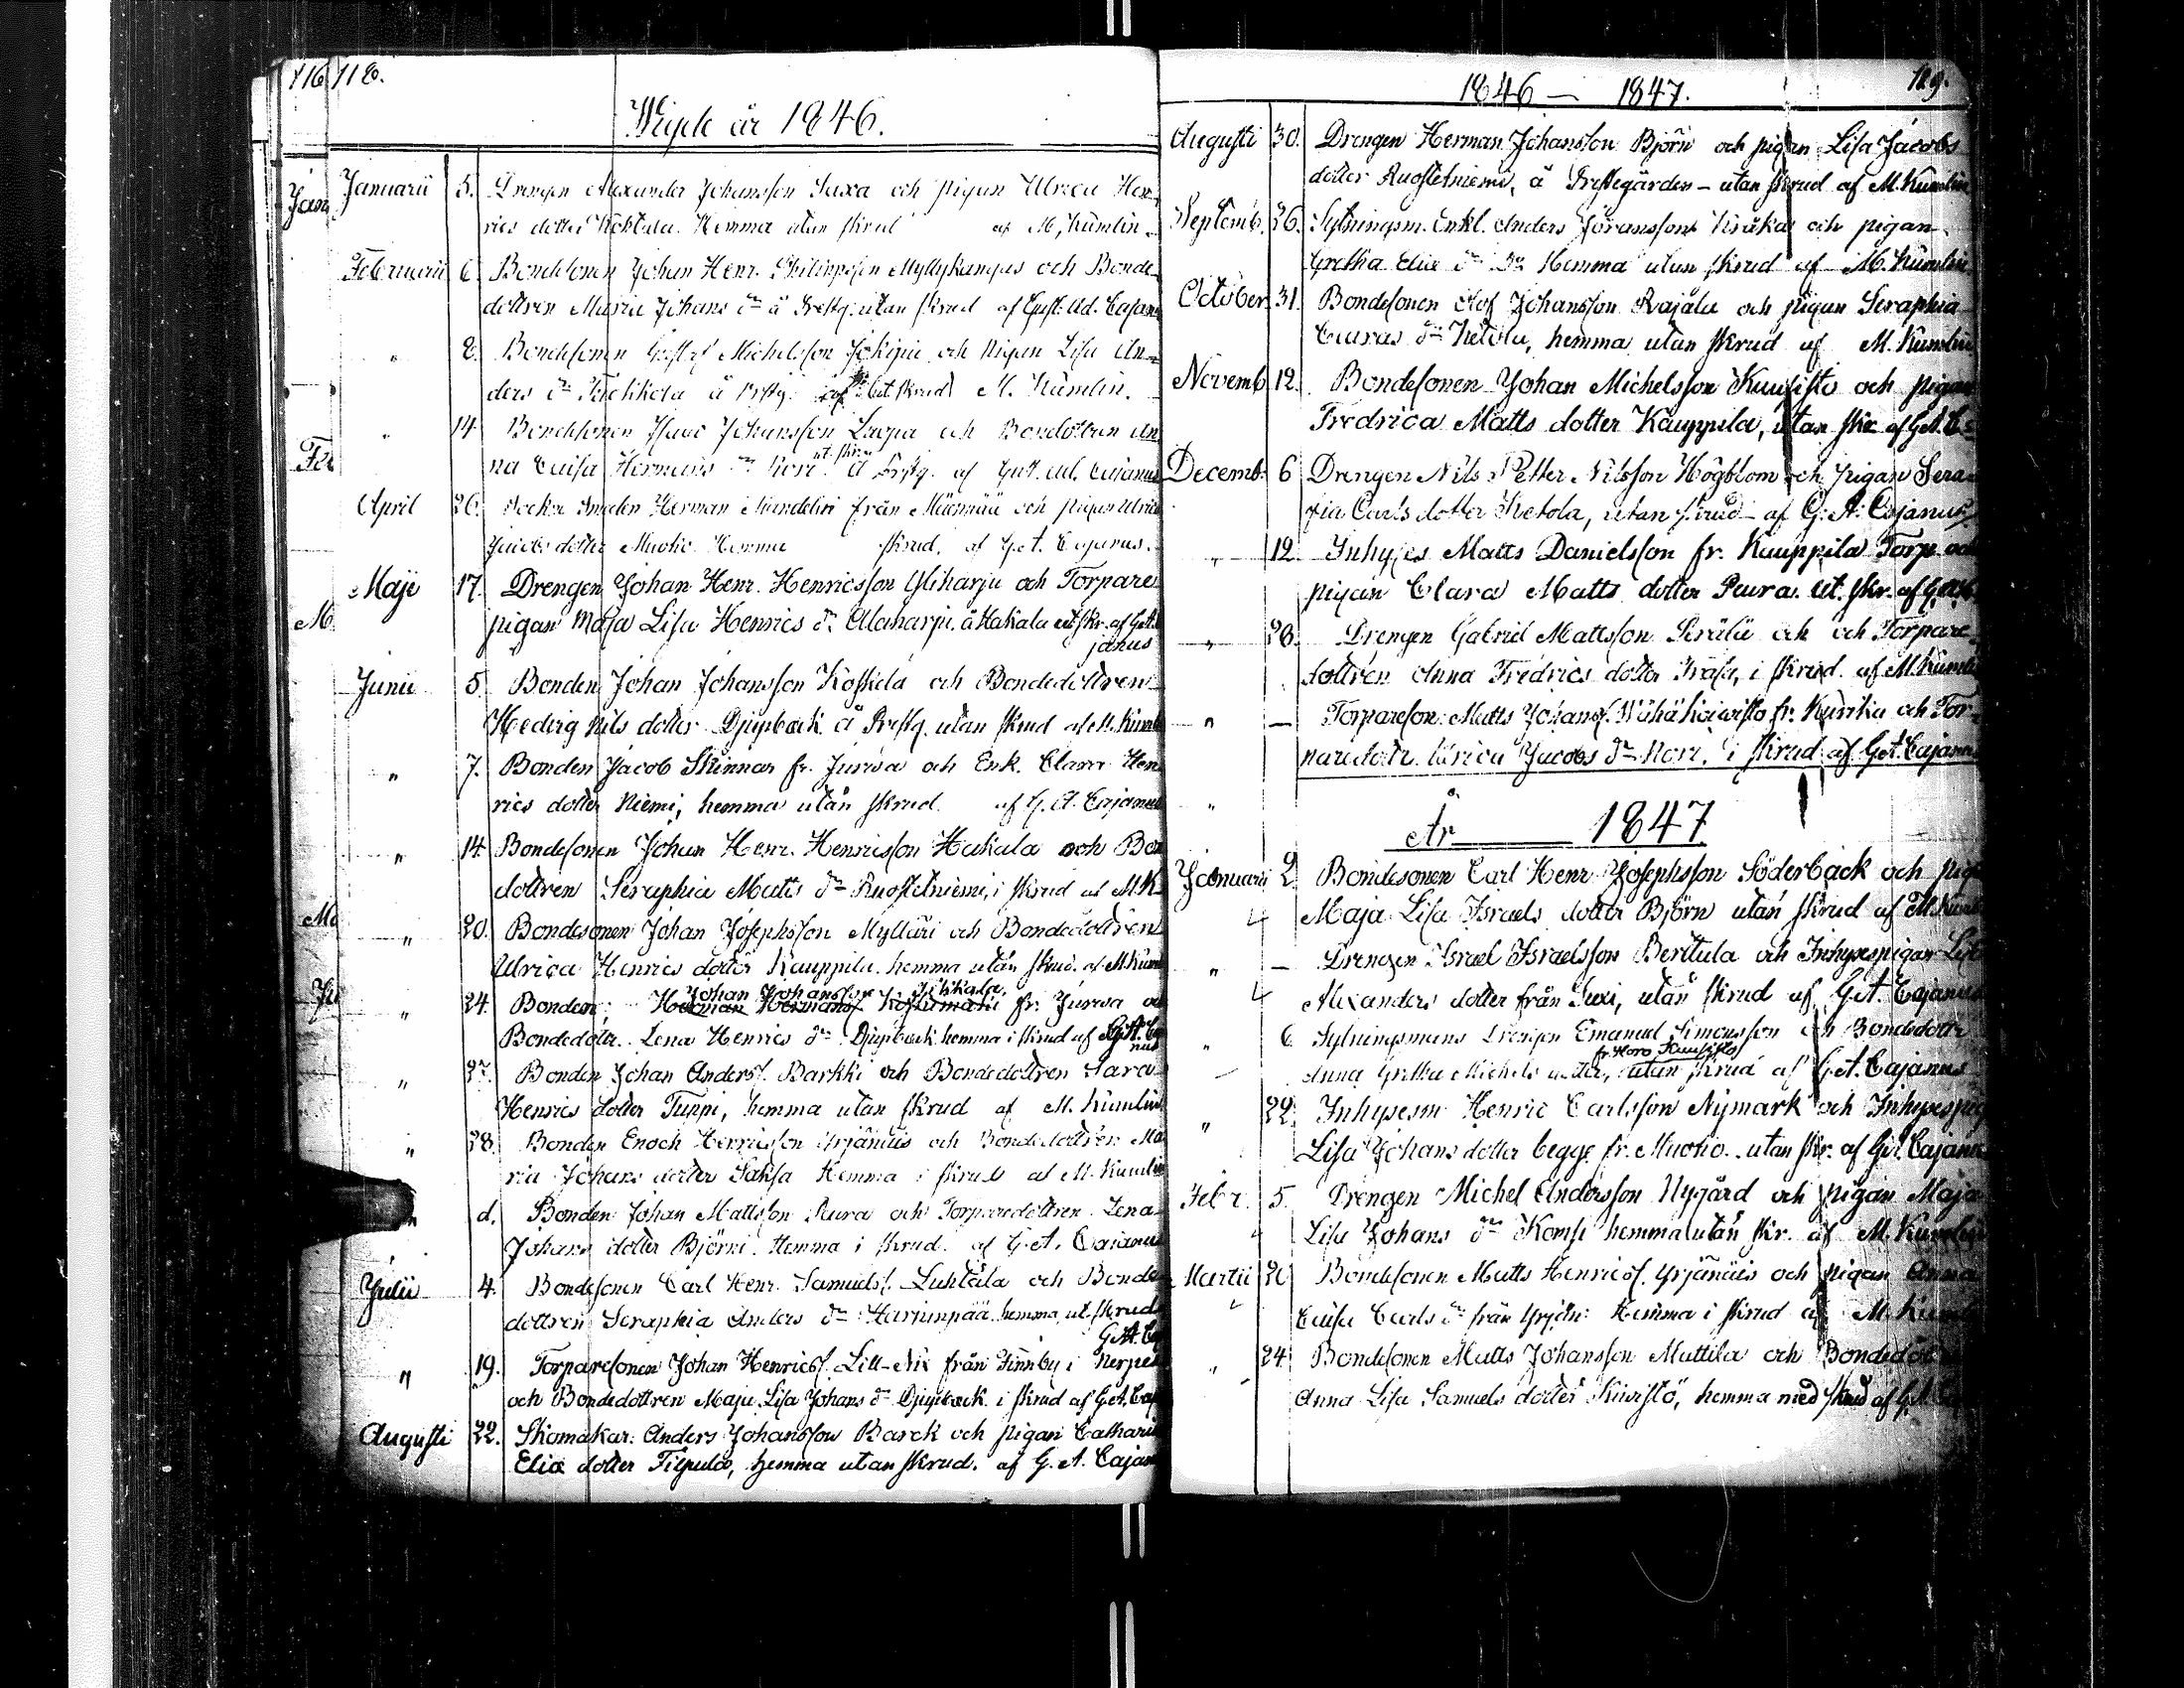 116 118.
Wigde år 1846.
Januarii 5. Drengen Alexander Johansson Saxa och pigan Ulrica Hen-
rics dotter Hemma utan skrud af M. Kumlin.
Februarii 6. Bondesonen Johan Henr. Philippsson Myllykangas och Bonde-
dottren Maria Johans dr å Prestg. utan skrud af Gust. Ad. Cajanus
" 8. Bondesonen Gustaf Michelsson Jokipii och Pigan Lisa An-
ders dr å Prstg. M. Kumlin.
" 14 Bondesonen Isaac Johansson Luopa och Bondedottren An-
na Caisa Hermans dr Kori ut. skr. å Prstg. af Gust. Ad. Cajanus
April 26. Sockne Smeden Herman Sundelin från och Pigan Ulrica
Jacobs dotter Muotio Hemma skrud. af G. A. Cajanus.
Maji 17. Drengen Johan Henr. Henricsson Yliharju och Torpare
pigan Maja Lisa Henrics dr Alaharju. å Hakala ut skr. af G.A.
janus
Junii 5 Bonden Johan Johansson Koskela och Bondedottren
Hedvig Nils dotter Djupback å Prestg. utan skrud af M. Kuml
" 7. Bonden Jacob Skinnar fr. Jurva och Enk. Clara Hen
rics dotter Niemi, hemma utan skrud. af G. A. Cajanus
" 14 Bondesonen Johan Henr. Henricsson Hakala och Bon
dottren Seraphia Matts dr Ruostetniemi, i skrud af M. K
" 20. Bondesonen Johan Josephsson Mylläri och Bondedottren
Ulrica Henrics dotter Kauppila. hemma utan skrud. af M. Kum
Johan Johansson
" 24. Bonden, Herman Hermans. fr. Jurva oc
Bondedottr. Lena Henrics dr Djupback. hemma i skrud af G.A. Ca
nus
" 27. Bonden Johan Anderss. Barkki och Bondedottren Sara
Henrics dotter Tuppi, hemma utan skrud af M. Kumlin
" 28. Bonden Enoch Henricsson Yrjänäis och Bondedottren Ma
ria Johans dotter Saksa Hemma i skrud af M. Kumlin
d. Bonden Johan Mattsson Peura och Torparedottren Lena
Johans dotter Björni. Hemma i skrud. af G. A. Cajanus
Julii 4. Bondesonen Carl Henr. Samuelss. Luhtala och Bonde
dottren Seraphia Anders dr Harjunpää hemma, ut. skrud
G. A. Ca
" 19. Torparesonen Johan Henricss. Lill-Nix från Finnby i Nerpes
och Bondedottren Maja Lisa Johans dr Djupback. i skrud af G. A. Caj
Augusti 22. Skomakar. Anders Johansson Barck och pigan Cathari
Eliæ dotter Filpula, hemma utan skrud. af G. A. Cajan
1846 — 1847. 119.
Augusti 30. Drengen Herman Johansson Björn och pigan Lisa Jacobs
dotter Ruostetniemi, å Prestegården - utan skrud af M. Kumlin
Septemb. 26. Sytningsm. Enkl. Anders Joransson Kråka och pigan
Gretha Eliæ dr Hemma utan skrud af M. Kumlin
October 31. Bondesonen Olof Johansson Rajala och pigan Seraphia
Carls dr Ketola, hemma utan skrud af M. Kumlin
Novemb. 12. Bondesonen Johan Michelsson Kuusisto och pigan
Fredrica Matts dotter Kauppila, utan skr. af G. A. C
Decemb. 6 Drengen Nils Petter Nilsson Högblom och pigan Sera-
fia Carls dotter Ketola, utan skrud - af G. A. Cajanus
" 12 Inhyses Matts Danielsson fr. Kauppila Torp och
pigan Clara Matts dotter Peura. ut. skr. af G. A.
" 28. Drengen Gabriel Mattsson och och Torpare-
dottren Anna Fredrics dotter i skrud. af M. Kumli
" — Torpareson. Matts Johanss. Wähäkoivisto fr. Kurika och Tor-
paredotr. Ulrica Jacobs dr Kori. i skrud af G. A. Cajanus
År 1847
Januarii 2. Bondesonen Carl Henr. Josephsson Söderback och pig
Maja Lisa Israels dotter Björn utan skrud af M. Kuml
" — Drengen Israel Israelsson Berttula och Inhysespigan Lisa
Alexanders dotter från Suxi, utan skrud af G. A. Cajanus
" 6 Sytningsmans Drengen Emanuel Simonsson och Bondedottr
fr. Horo Kuusisto
Anna Gretha Michels dotter, utan skrud af G. A. Cajanus
" 22. Inhysesm Henric Carlsson Nymark och Inhysespig
Lisa Johans dotter begge fr. Muotio. utan skr. af G. A. Cajanu
Febr. 5. Drengen Michel Andersson Nygård och pigan Maja
Lisa Johans dr Komsi hemma utan skr. af M. Kumlin
Martii 20 Bondesonen Matts Henricss. Yrjänäis och pigan Anna
Caisa Carls dr från Yrjän: Hemma i skrud af M. Kuml
" 24. Bondesonen Matts Johansson Mattila och Bondedot
Anna Lisa Samuels dotter Kivistö, hemma med skrud af G. A.